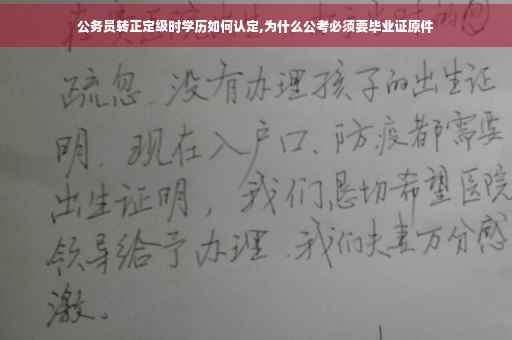 公务员转正定级时学历如何认定,为什么公考必须要毕业证原件
疏忽、没有办理孩子的出生证
明、现在入户口、防疫都需要
出生证明，我们恳切希望医院
领导给予办理、我们夫妻万分感
激。